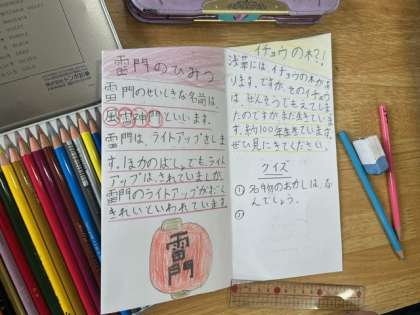 雷門のひみつ
雷門のせいしきな名前は、
風雷神門といいます。
雷門は、ライトアップをしま
す。ほかのばしょでもライト
アップは、されていましたが、
雷門のライトアップが
きれいといわれています。
雷門
イチョウの木?!
浅草には、イチョウの木があ
ります。ですが、そのイチョウ
は、せんそうでもえてしまっ
たのですがまだ生きていま
す。約100年生きています。
ぜひ見にきてください。
クイズ
① 名物のおかしは、な
んでしょう。
②